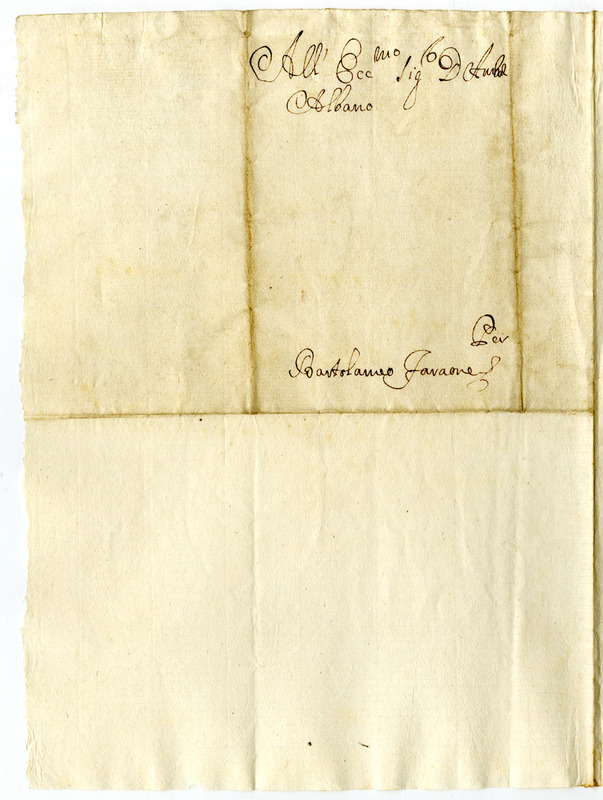 All' Ecc.mo Sig.r D.
Albano
Per
Bartolameo Faraone